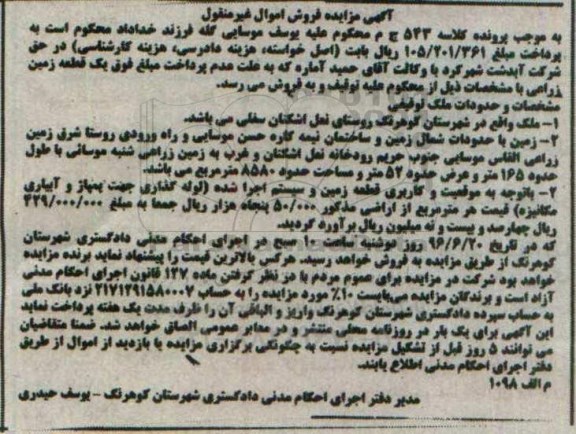 آگهی مزایده فروش اموال غیرمنقول
به موجب پرونده کلاسه ۵۴۳ ج م محکوم علیه یوسف موسایی گله فرزند خداداد محکوم است به
پرداخت مبلغ ۱۰۵/۲۰۱/۳۶۱ ریال بابت (اصل خواسته، هزینه دادرسی، هزینه کارشناسی) در حق
شرکت آبدشت شهرکرد با وکالت آقای حمید آماره که به علت عدم پرداخت مبلغ فوق یک قطعه زمین
زراعی با مشخصات ذیل از محکوم علیه توقیف و به فروش می رسد.
مشخصات و حدودات ملک توقیفی
۱- ملک واقع در شهرستان کوهرنگ روستای نعل اشکنان سفلی می باشد.
۲- زمین با حدودات شمال زمین و ساختمان نیمه کاره حسن موسایی و راه ورودی روستا شرق زمین
زراعی الفاس موسایی جنوب حریم رودخانه نعل اشکنان و غرب به زمین زراعی شنبه موسائی با طول
حدود ۱۶۵ متر و عرض حدود ۵۲ متر و مساحت حدود ۸۵۸۰ مترمربع می باشد.
۲- باتوجه به موقعیت و کاربری قطعه زمین و سیستم اجرا شده (لوله گذاری جهت پمپاژ و آبیاری
مکانیزه) قیمت هر مترمربع از اراضی مذکور ۵۰/۰۰۰ پنجاه هزار ریال جمعا به مبلغ ۴۲۹/۰۰۰/۰۰۰
ریال چهارصد و بیست و نه میلیون ریال برآورد گردید.
که در تاریخ ۹۶/۶/۲۰ روز دوشنبه ساعت ۱۰ صبح در اجرای احکام مدنی دادگستری شهرستان
کوهرنگ از طریق مزایده به فروش خواهد رسید. هرکس بالاترین قیمت را پیشنهاد نماید برنده مزایده
خواهد بود شرکت در مزایده برای عموم مردم با در نظر گرفتن ماده ۱۲۷ قانون اجرای احکام مدنی
آزاد است و برندگان مزایده می‌بایست ۱۰٪ مورد مزایده را به حساب ۲۱۷۱۲۹۱۵۸۰۰۰۷ نزد بانک ملی
به حساب سپرده دادگستری شهرستان کوهرنگ واریز و الباقی آن را ظرف مدت یک هفته پرداخت نماید
این آگهی برای یک بار در روزنامه محلی منتشر و در معابر عمومی الصاق خواهد شد. ضمنا متقاضیان
می توانند ۵ روز قبل از تشکیل مزایده نسبت به چگونگی برگزاری مزایده یا بازدید از اموال از طریق
دفتر اجرای احکام مدنی اطلاع یابند.
م الف ۱۰۹۸
مدیر دفتر اجرای احکام مدنی دادگستری شهرستان کوهرنگ - یوسف حیدری